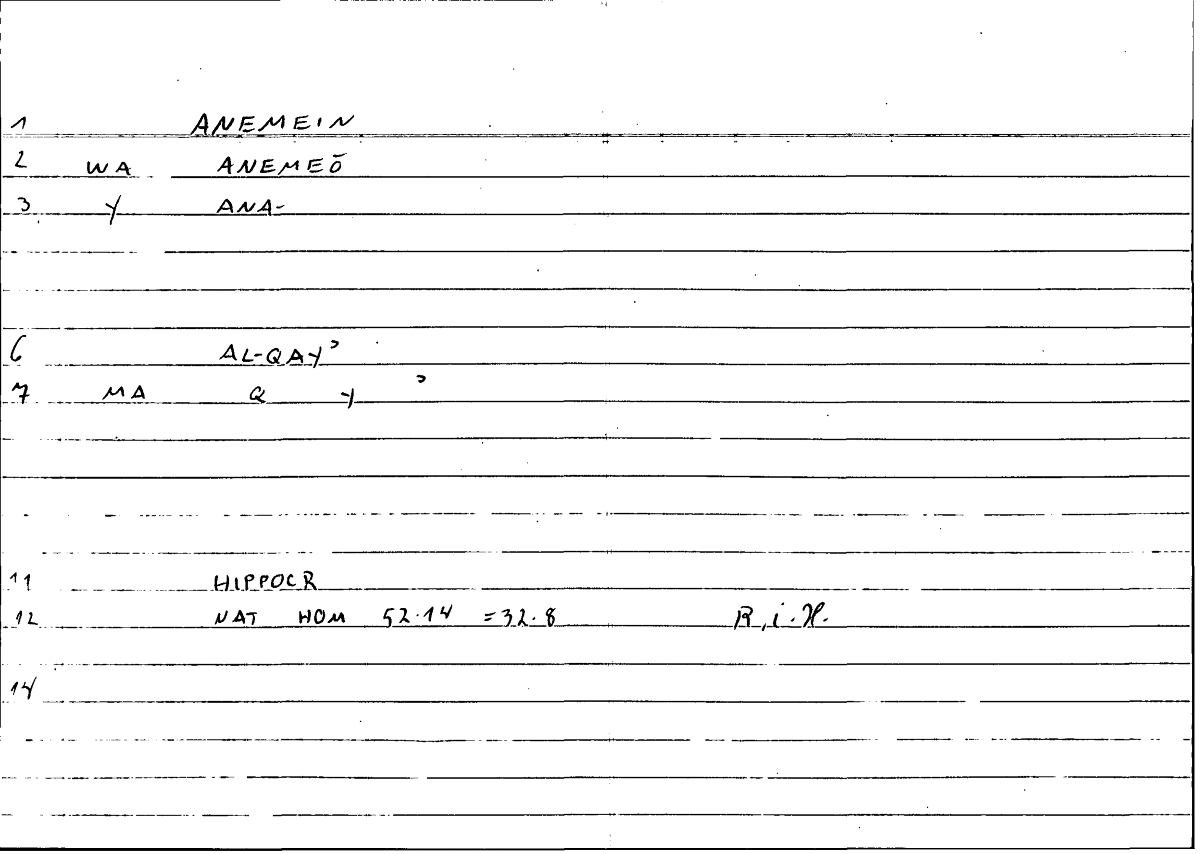 1 ANEMEIN
2 WA ANEMEŌ
3 Y ANA-
6 AL-QAYʾ
7 MA Q Y ʾ
11 HIPPOCR
12 NAT HOM 52.14 =32.8 R, i. H.
14